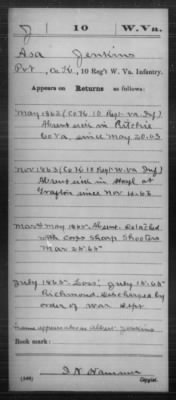 J | 10 | W. Va.
Asa Jenkins
Pvt, Co. K, 10 Reg't W. Va. Infantry.
Appears on Returns as follows:
May 1863 (Co K 10 Regt W.Va Inf)
Absent sick in Ritchie
Co Va since May 20.63
Nov 1863 (Co K 10 Regt W.Va Inf)
Absent sick in Hospl at
Grafton since Nov 14.63
Mar & May 1865 Absent Detached
with corps sharp shooters
Mar 25.65
July 1865 Loss: July 15.65
Richmond discharged by
order of War Dept
name appears as Jenkins
Book mark:
(546)
Copyist.